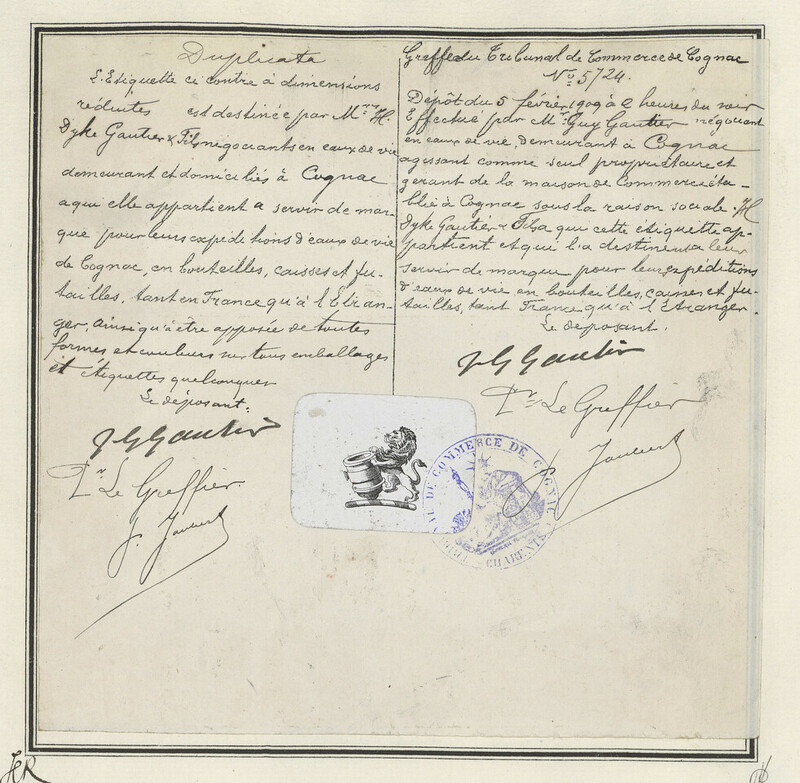 Duplicata
L'Etiquette ci contre à dimensions
réduites est destinée par Mrs H.
Dyke Gautier & Fils négociants en eaux de vie
demeurant et domiciliés à Cognac
a qui elle appartient a servir de mar-
que pour leurs expéditions d'eaux de vie
de Cognac, en bouteilles, caisses et fu-
tailles, tant en France qu'à l'Etran-
ger, ainsi qu'à être apposée de toutes
formes et couleurs sur tous emballages
et étiquettes quelconques
Le déposant.
J G Gautier
Pr Le Greffier
J. Jaulert
Greffe du Tribunal de Commerce de Cognac
No 5724.
Dépôt du 5 février 1909 à 2 heures du soir
Effectué par Mr Guy Gautier négociant
en eaux de vie, demeurant à Cognac
agissant comme seul propriétaire et
gérant de la maison de Commerce éta-
blie à Cognac sous la raison sociale. H
Dyke Gautier & Fils a qui cette étiquette ap-
partient et qui l'a destine a leur
servir de marque pour leurs expéditions
d'eaux de vie en bouteilles, caisses et fu-
tailles, tant France qu'à l'Etranger.
Le déposant.
J G Gautier
Pr Le Greffier
DE COMMERCE DE COGNAC
CHARENTE